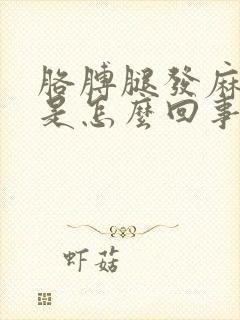 胳膊腿發麻
是怎麼回事
虾菇